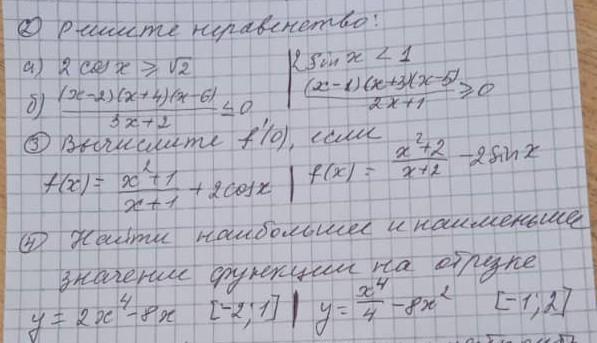 ② Решите неравенство:
а) 2 cos x ≥ √2 | 2 sin x < 1
б) (x-2)(x+4)(x-6)/(3x+2) ≤ 0 | (x-1)(x+3)(x-5)/(2x+1) ≥ 0
③ Вычислите f'(0), если
f(x) = (x²+1)/(x+1) + 2cos x | f(x) = (x²+2)/(x+2) - 2 sin x
④ Найти наибольшее и наименьшее
значение функции на отрезке
y = 2x⁴ - 8x [-2; 1] | y = x⁴/4 - 8x² [-1; 2]